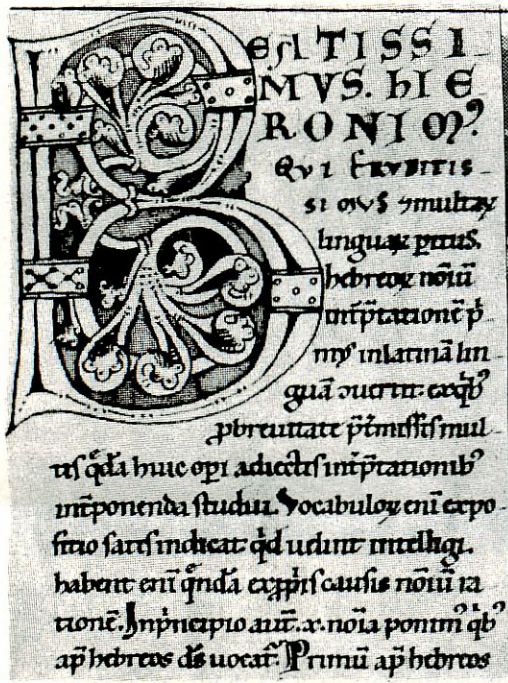 BEATISSI
MVS. hIE
RONIMꝰ
QVI ERVDITIS
SIMVS ⁊ multaꝝ
linguaꝝ pitus.
hebreoꝝ noīū
int̄p̄tationē p̄
mꝰ in latinā lin
guā ↄuertit. ex qͥbꝰ
p breuitate p̄t̄missis mul
tis qͥdā huic opi adiectis int̄p̄tationibꝰ
int̄ponenda studui. Vocabuloꝝ eni expo
sitio satis indicat qͥd uelint intelligi.
habent eni qͣndā ex ꝓpͥis causis noīū ra
tionē. In pͥncipio aut̄ .x. noīa ponimꝰ qͥbꝰ
ap̄ hebreos dꝰs uocat. Primū ap̄ hebreos